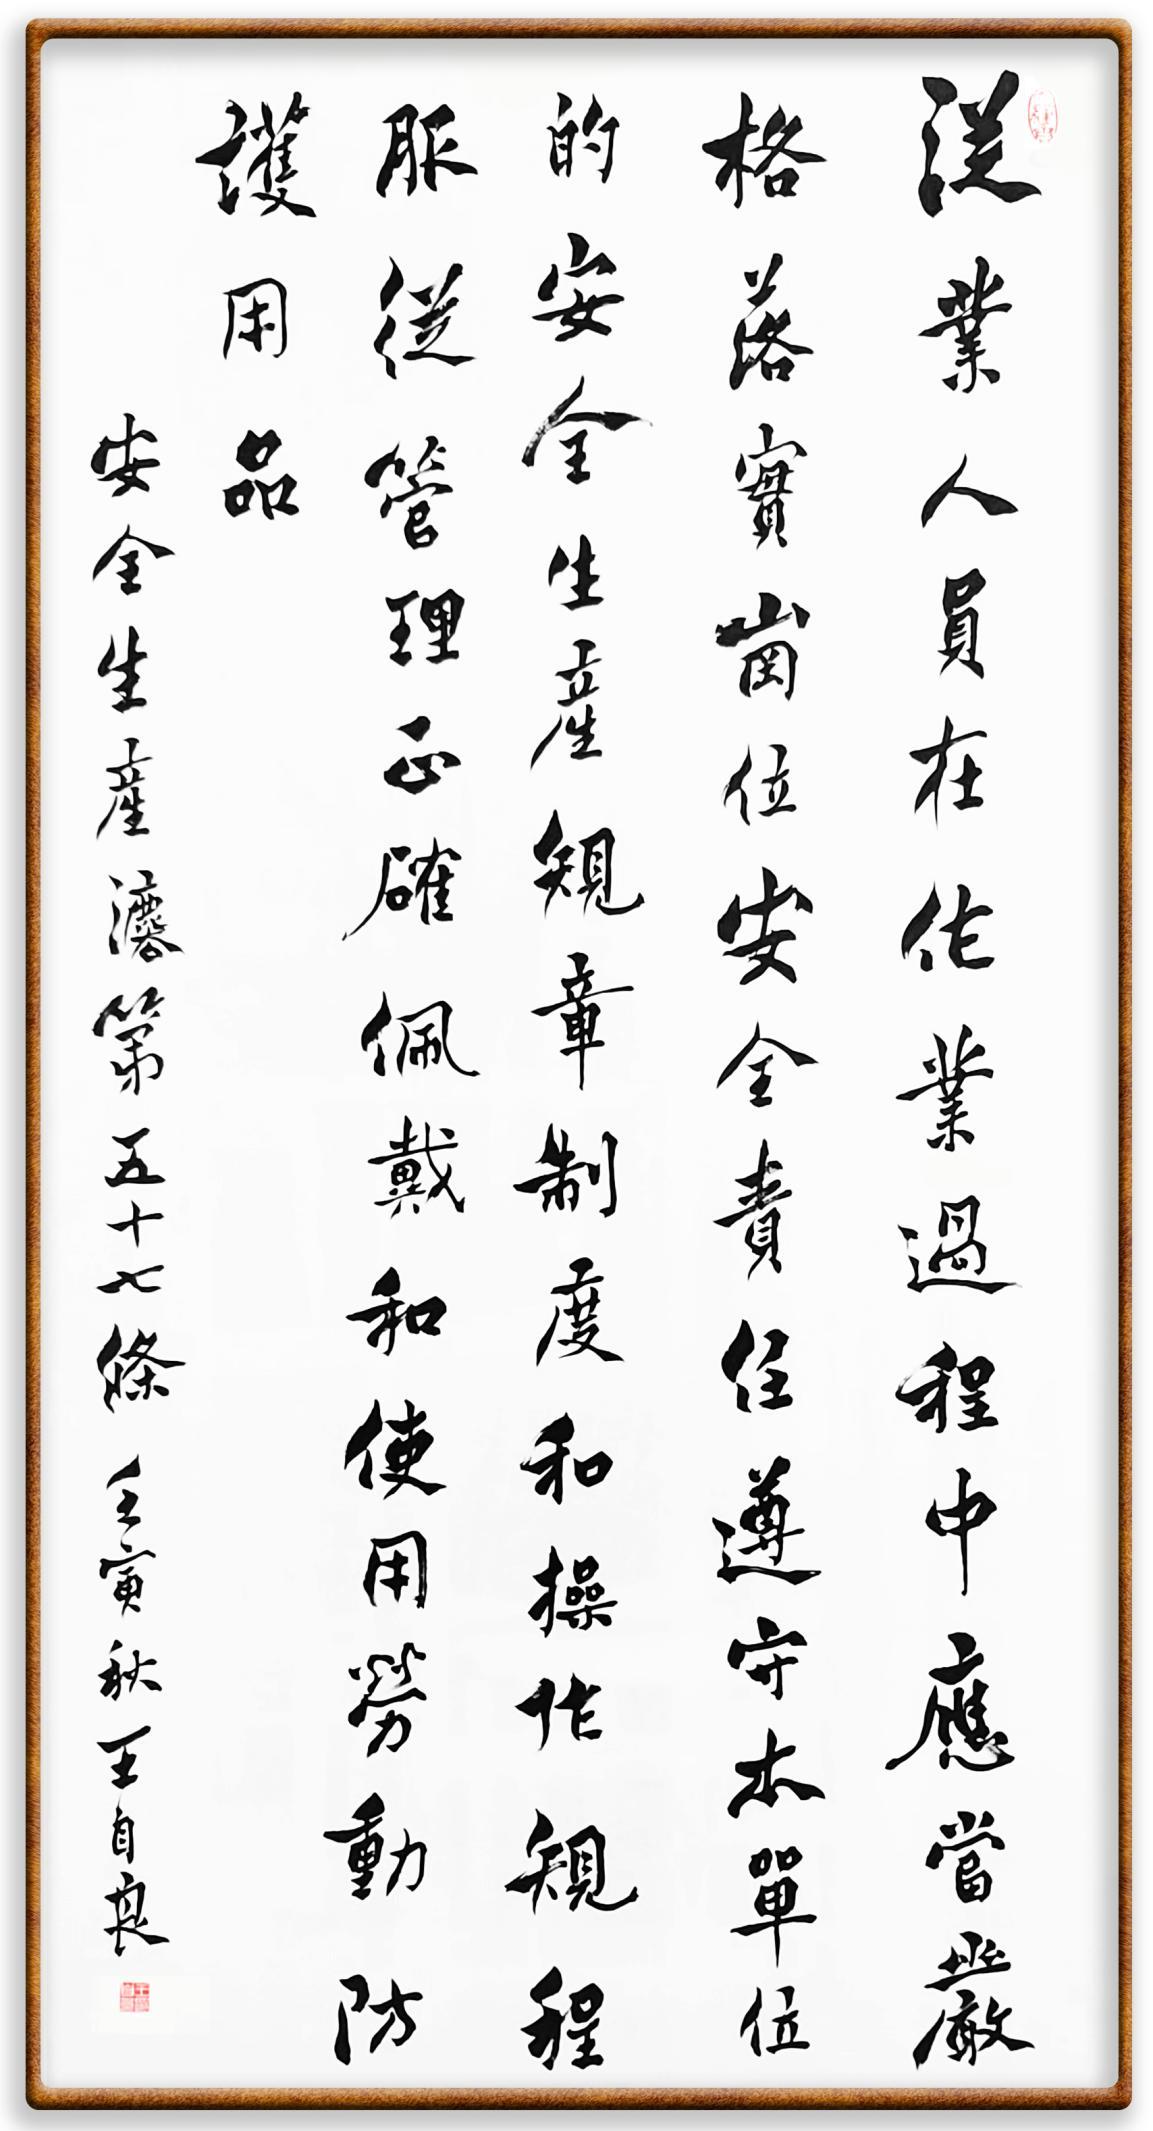 從業人員在作業過程中應當嚴
格落實崗位安全責任遵守本單位
的安全生產規章制度和操作規程
服從管理正確佩戴和使用勞動防
護用品
安全生產灋第五十七條 壬寅秋王自良